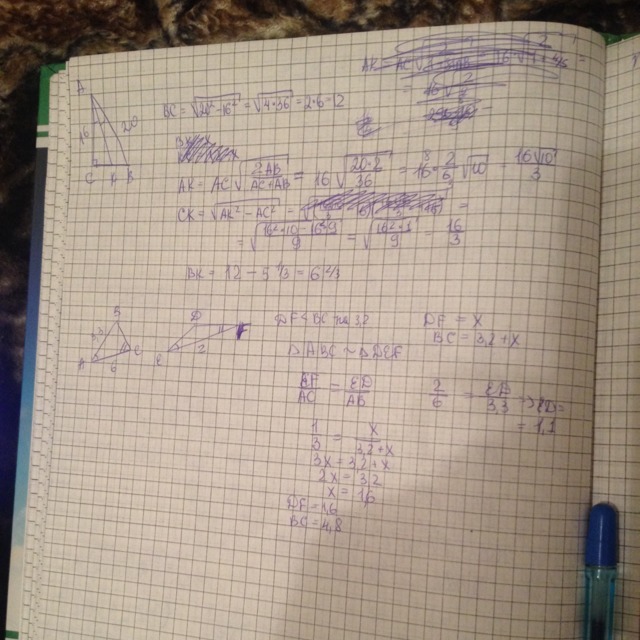 A
16
20
C K B
BC = √20² - 16² = √4·36 = 2·6 = 12
AK = AC √2AB/AC+AB = 16 √20·2/36 = 16 · 2/6 √10 = 16√10/3
CK = √AK² - AC² =
= √16²·10 - 16²·9/9 = √16²·1/9 = 16/3
BK = 12 - 5 1/3 = 6 2/3
B
3,3
A
C
6
D
E
2
DF < BC на 3,2
DF = x
BC = 3,2 + x
△ABC ~ △DEF
EF/AC = ED/AB
2/6 = ED/3,3 => ED =
= 1,1
1/3 = x/3,2+x
3x = 3,2 + x
2x = 3,2
x = 1,6
DF = 1,6
BC = 4,8